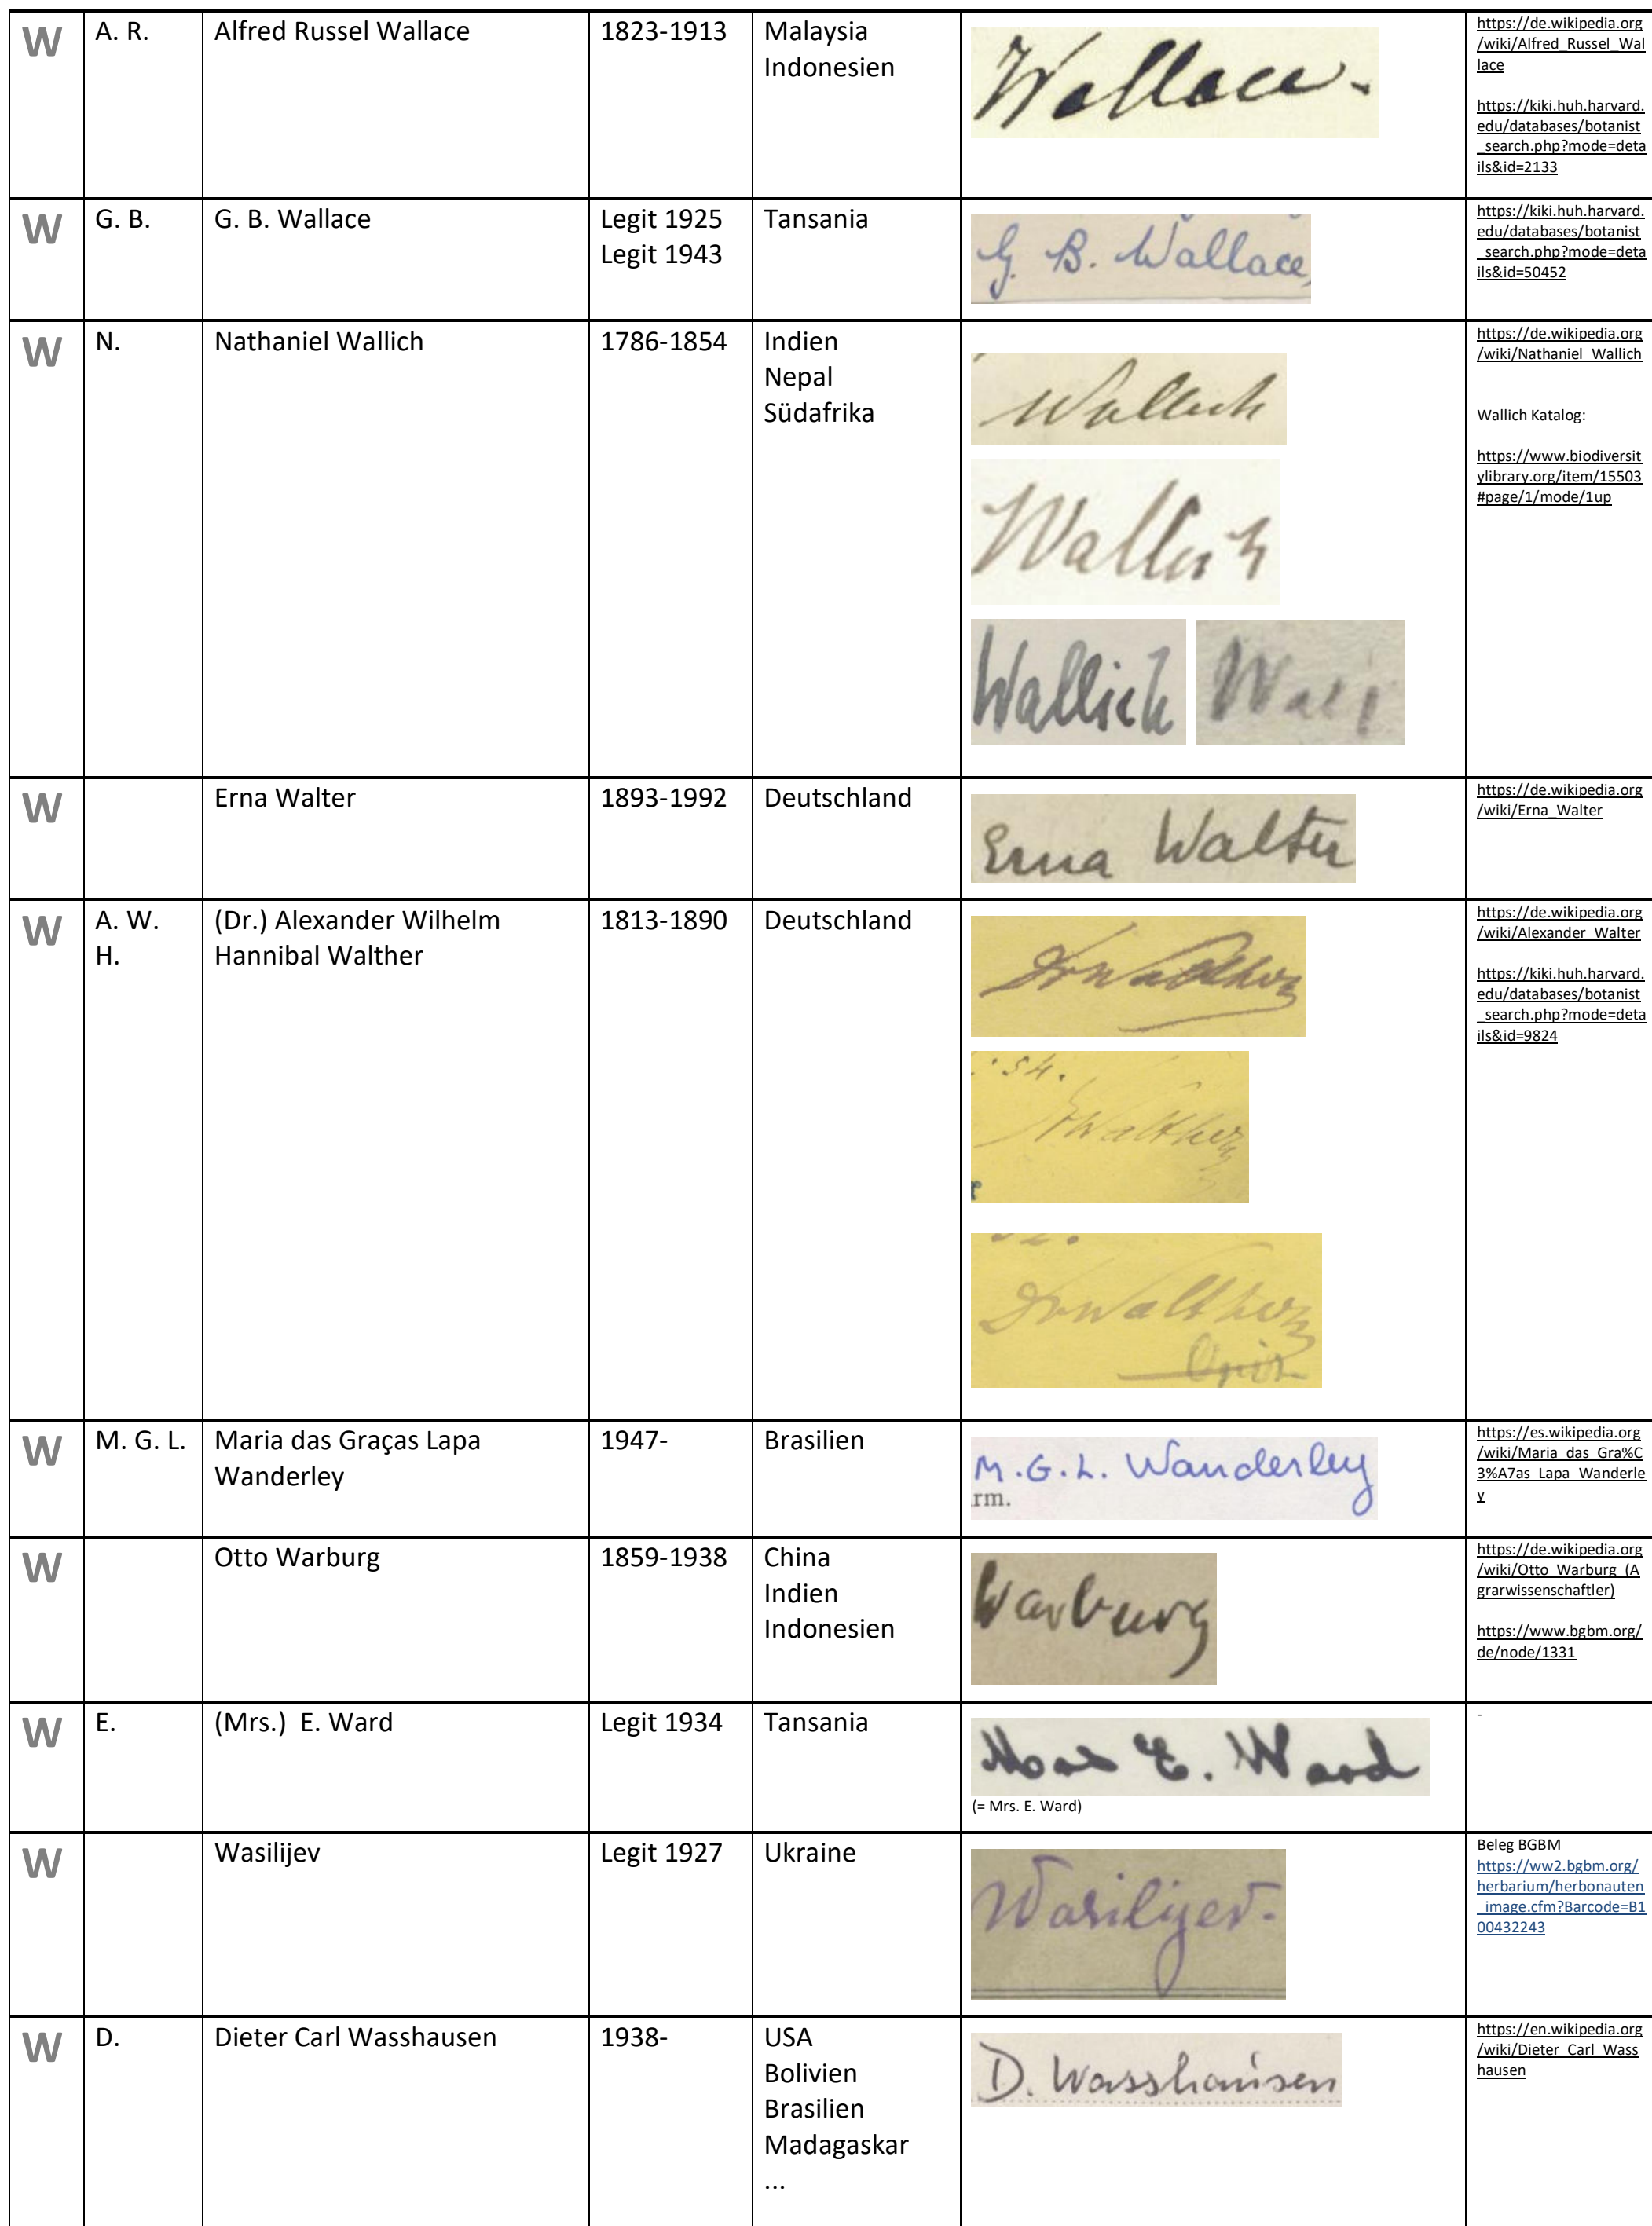 W
A. R.
Alfred Russel Wallace
1823-1913
Malaysia
Indonesien
Wallace.
https://de.wikipedia.org
/wiki/Alfred_Russel_Wal
lace
https://kiki.huh.harvard.
edu/databases/botanist
_search.php?mode=deta
ils&id=2133
W
G. B.
G. B. Wallace
Legit 1925
Legit 1943
Tansania
G. B. Wallace
https://kiki.huh.harvard.
edu/databases/botanist
_search.php?mode=deta
ils&id=50452
W
N.
Nathaniel Wallich
1786-1854
Indien
Nepal
Südafrika
Wallich
Wallich
Wallich
Wall
https://de.wikipedia.org
/wiki/Nathaniel_Wallich
Wallich Katalog:
https://www.biodiversit
ylibrary.org/item/15503
#page/1/mode/1up
W
Erna Walter
1893-1992
Deutschland
Erna Walter
https://de.wikipedia.org
/wiki/Erna_Walter
W
A. W.
H.
(Dr.) Alexander Wilhelm
Hannibal Walther
1813-1890
Deutschland
Dr Walther
54.
Walther
Dr Walther
https://de.wikipedia.org
/wiki/Alexander_Walter
https://kiki.huh.harvard.
edu/databases/botanist
_search.php?mode=deta
ils&id=9824
W
M. G. L.
Maria das Graças Lapa
Wanderley
1947-
Brasilien
M.G.L. Wanderley
rm.
https://es.wikipedia.org
/wiki/Maria_das_Gra%C
3%A7as_Lapa_Wanderle
y
W
Otto Warburg
1859-1938
China
Indien
Indonesien
Warburg
https://de.wikipedia.org
/wiki/Otto_Warburg_(A
grarwissenschaftler)
https://www.bgbm.org/
de/node/1331
W
E.
(Mrs.) E. Ward
Legit 1934
Tansania
Mrs E. Ward
(= Mrs. E. Ward)
-
W
Wasilijev
Legit 1927
Ukraine
Wasilijev.
Beleg BGBM
https://ww2.bgbm.org/
herbarium/herbonauten
_image.cfm?Barcode=B1
00432243
W
D.
Dieter Carl Wasshausen
1938-
USA
Bolivien
Brasilien
Madagaskar
...
D. Wasshausen
https://en.wikipedia.org
/wiki/Dieter_Carl_Wass
hausen